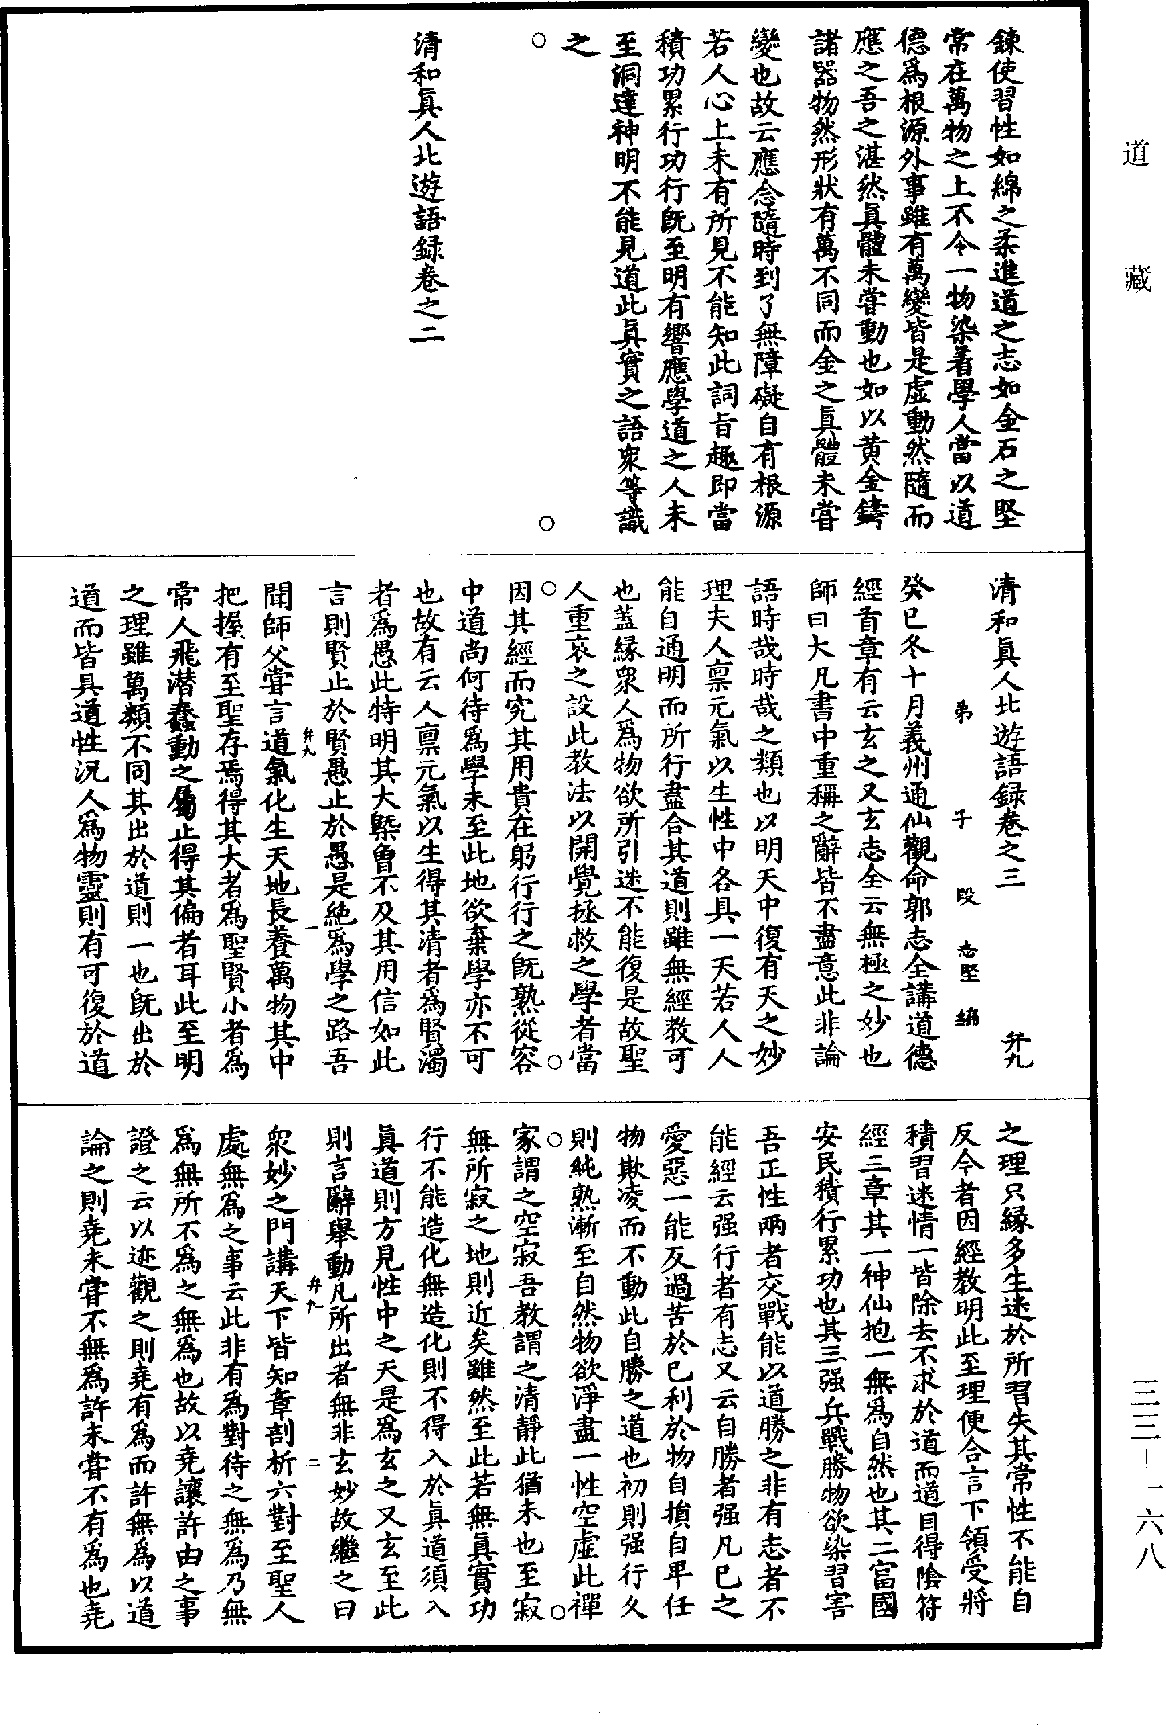 道藏
錬使習性如綿之柔進道之志如金石之堅
常在萬物之上不令一物染着學人當以道
德爲根源外事雖有萬變皆是虛動然隨而
應之吾之湛然眞體未甞動也如以黄金鑄
諸器物然形狀有萬不同而金之眞體未甞
變也故云應念隨時到了無障礙自有根源
若人心上未有所見不能知此詞旨趣即當
積功累行功行旣至明有響應學道之人未
至洞達神明不能見道此眞實之語衆等識
之
清和眞人北遊語録卷之二
清和眞人北遊語録卷之三
弁九
弟子段志堅編
癸巳冬十月義州通仙觀命郭志全講道德
經首章有云玄之又玄志全云無極之妙也
師曰大凡書中重稱之辭皆不盡意此非論
語時哉時哉之類也以明天中復有天之妙
理夫人禀元氣以生性中各具一天若人人
能自通明而所行盡合其道則雖無經教可
也蓋緣衆人爲物欲所引迷不能復是故聖
人重哀之設此教法以開覺拯救之學者當
因其經而究其用貴在躬行行之旣熟從容
中道尚何待爲學未至此地欲棄學亦不可
也故有云人禀元氣以生得其清者爲賢濁
者爲愚此特明其大槩曾不及其用信如此
言則賢止於賢愚止於愚是絶爲學之路吾
弁九
一
聞師父甞言道氣化生天地長養萬物其中
把握有至聖存焉得其大者爲聖賢小者爲
常人飛潜蠢動之屬止得其偏者耳此至明
之理雖萬類不同其出於道則一也旣出於
道而皆具道性况人爲物靈則有可復於道
之理只緣多生迷於所習失其常性不能自
反今者因經教明此至理便合言下領受將
積習迷情一皆除去不求於道而道自得陰符
經三章其一神仙抱一無爲自然也其二富國
安民積行累功也其三强兵戰勝物欲染習害
吾正性兩者交戰能以道勝之非有志者不
能經云强行者有志又云自勝者强凡已之
愛惡一能反過苦於已利於物自損自卑任
物欺凌而不動此自勝之道也初則强行久
則純熟漸至自然物欲淨盡一性空虛此禪
家謂之空寂吾教謂之清靜此猶未也至寂
無所寂之地則近矣雖然至此若無眞實功
行不能造化無造化則不得入於眞道須入
眞道則方見性中之天是爲玄之又玄至此
則言辭舉動凡所出者無非玄妙故繼之曰
弁九
二
衆妙之門講天下皆知章剖析六對至聖人
處無爲之事云此非有爲對待之無爲乃無
爲無所不爲之無爲也故以堯讓許由之事
證之云以迹觀之則堯有爲而許無爲以道
論之則堯未甞不無爲許未甞不有爲也堯
三三－一六八